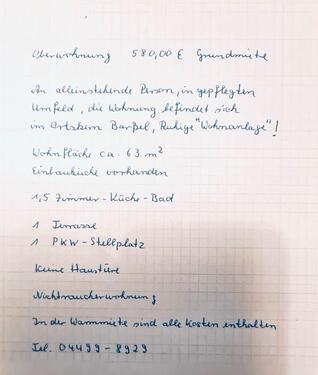 Oberwohnung 580,00 € Grundmiete
An alleinstehende Person, in gepflegten
Umfeld, die Wohnung befindet sich
im Ortskern Barßel, Ruhige "Wohnanlage"!
Wohnfläche ca. 63 m²
Einbauküche vorhanden
1,5 Zimmer-Küche-Bad
1 Terrasse
1 PKW-Stellplatz
Keine Haustiere
Nichtraucherwohnung
In der Warmmiete sind alle Kosten enthalten
Tel. 04499-8929